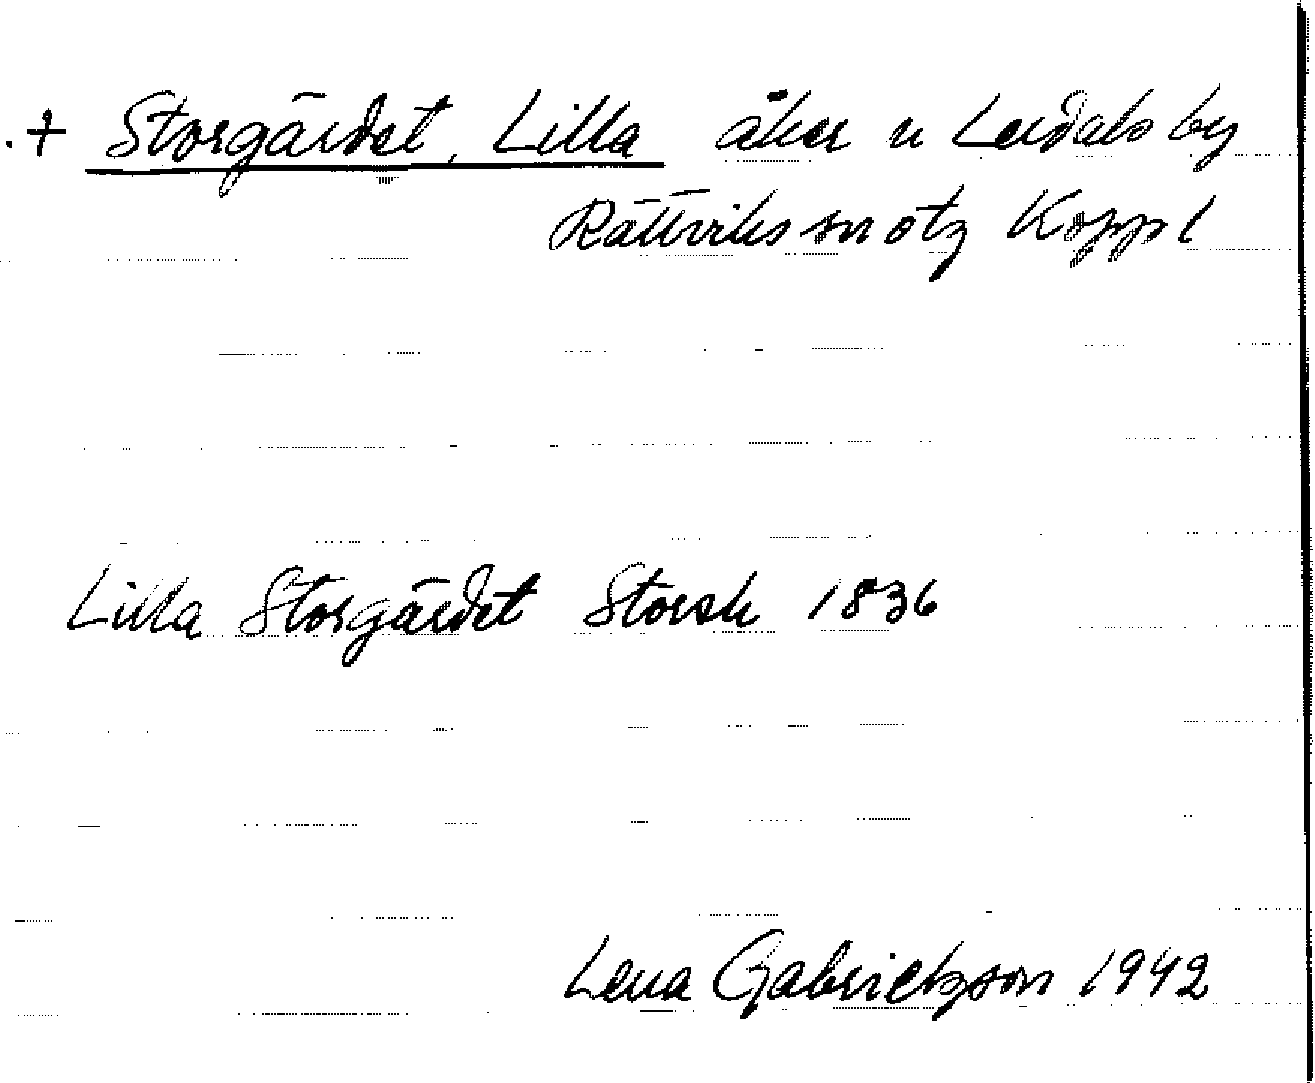 + Storgärdet, Lilla åker u Lerdals by
Rättviks sn otz Koppl
Lilla Storgärdet Storsk 1836
Lena Gabrickson 1942